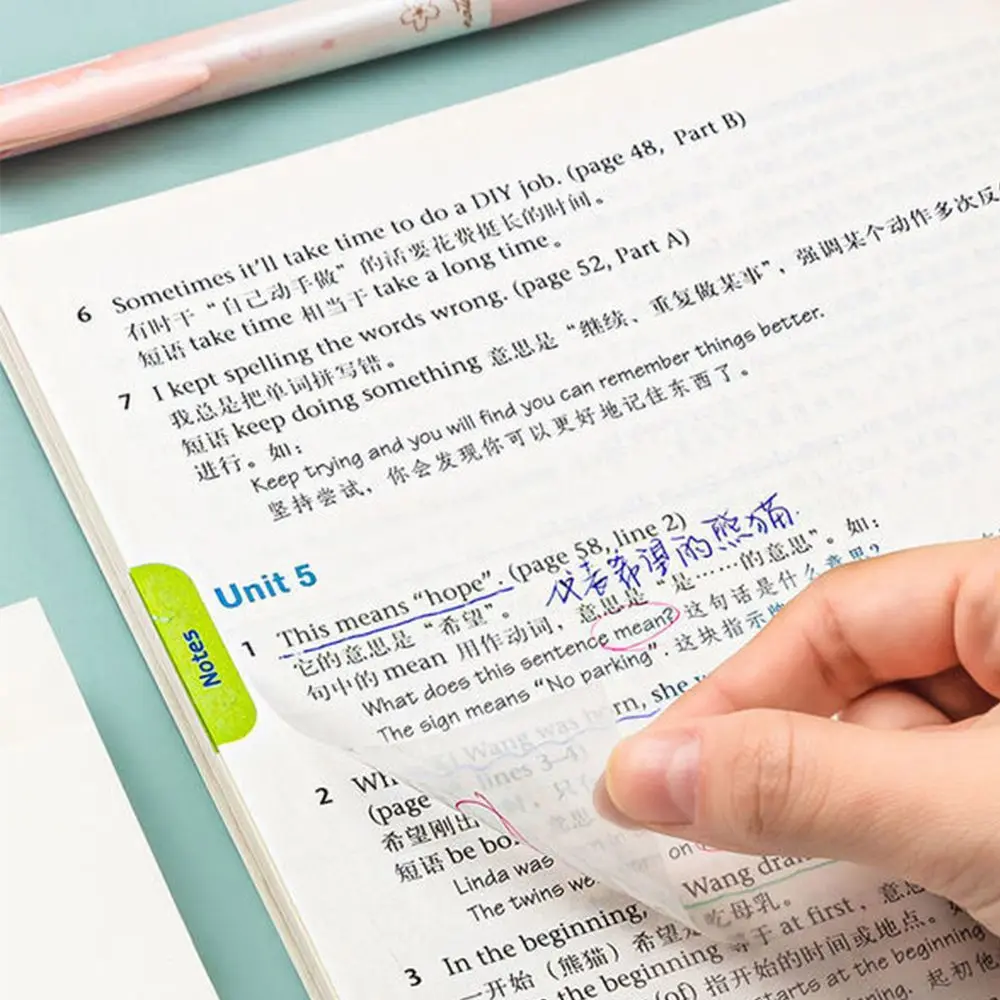 6 Sometimes it'll take time to do a DIY job. (page 48, Part B)
有时干“自己动手做”的活要花费挺长的时间。
短语 take time 相当于 take a long time。
7 I kept spelling the words wrong. (page 52, Part A)
我总是把单词拼写错。
短语 keep doing something 意思是“继续、重复做某事”，强调某个动作多次反
进行。如：
Keep trying and you will find you can remember things better.
坚持尝试，你会发现你可以更好地记住东西了。
Unit 5
Notes
1 This means “hope”. (page 58, line 2)
代表希望的熊猫.
它的意思是“希望”。
句中的 mean 用作动词，意思是“是……的意思”。如：
What does this sentence mean? 这句话是什么意思？
The sign means “No parking”. 这块指示牌
2 Wh Xi Wang was born, she w
(page lines 3–4)
希望刚出 时，只
短语 be bo
Linda was on
The twins we
Wang dran
3 In the beginning,
一开始（熊猫）希望 吃母乳。
the beginning 等于 at first，意思
(of) 指开始的时间或地点。如
starts at the beginning
beginning. 起初他